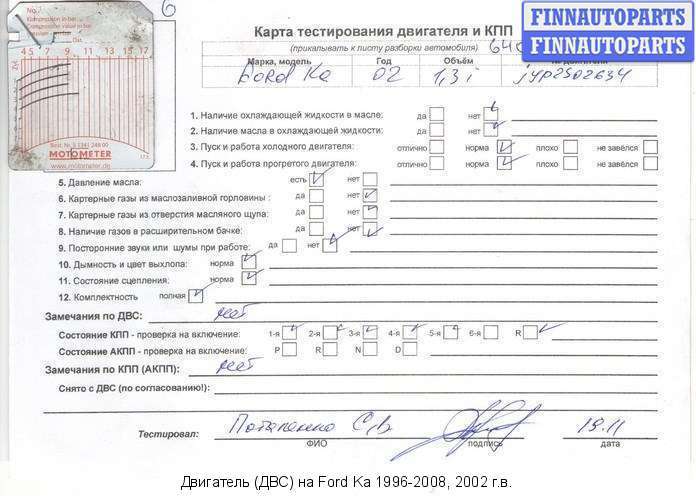 FINNAUTOPARTS
FINNAUTOPARTS
Карта тестирования двигателя и КПП
(прикалывать к листу разборки автомобиля)
Марка, модель Год Объём
Ford Ka 02 1,3i
4 5 7 9 11 13 15 17
MOTOMETER
www.motometer.de
1. Наличие охлаждающей жидкости в масле: да нет
2. Наличие масла в охлаждающей жидкости: да нет
3. Пуск и работа холодного двигателя: отлично норма плохо не завёлся
4. Пуск и работа прогретого двигателя: отлично норма плохо не завёлся
5. Давление масла: есть нет
6. Картерные газы из маслозаливной горловины : да нет
7. Картерные газы из отверстия масляного щупа: да нет
8. Наличие газов в расширительном бачке: да нет
9. Посторонние звуки или шумы при работе: да нет
10. Дымность и цвет выхлопа: норма
11. Состояние сцепления: норма
12. Комплектность полная
Замечания по ДВС: нет
Состояние КПП - проверка на включение: 1-я 2-я 3-я 4-я 5-я 6-я R
Состояние АКПП - проверка на включение: P R N D
Замечания по КПП (АКПП): нет
Снято с ДВС (по согласованию!):
Тестировал: Потапенко С.В. 19.11
ФИО подпись дата
Двигатель (ДВС) на Ford Ka 1996-2008, 2002 г.в.